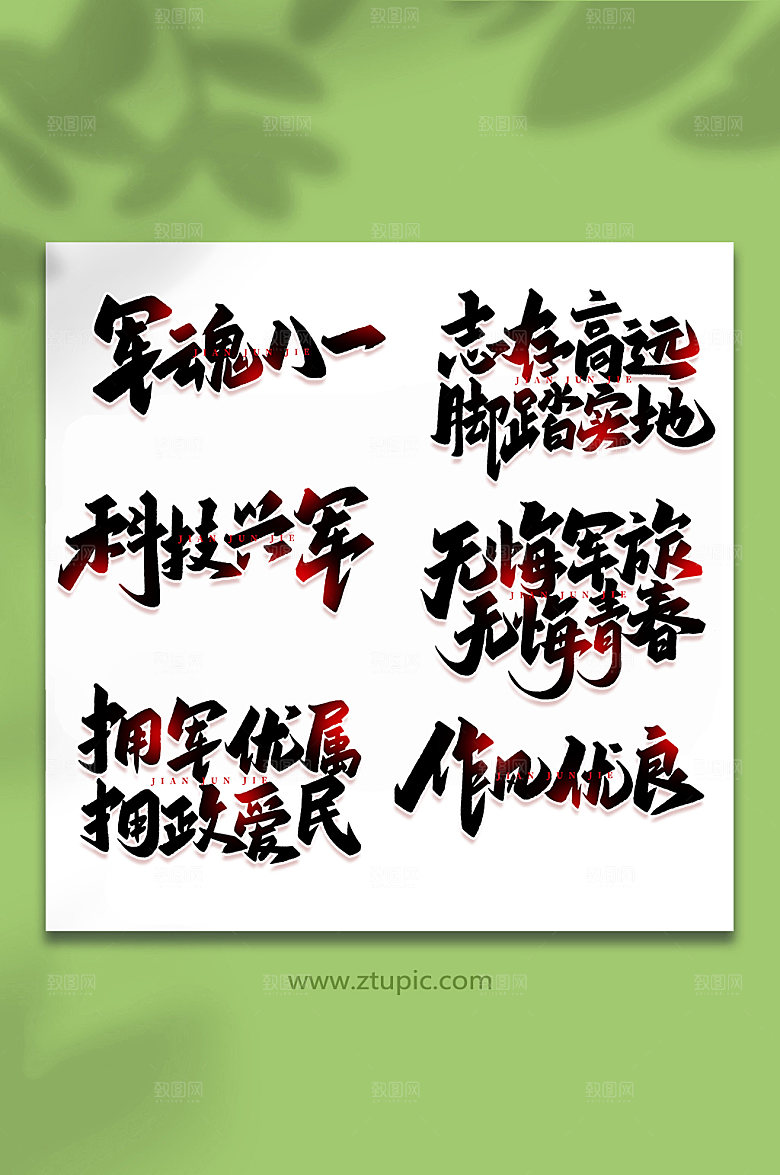 军魂小一
JIAN JUN JIE
志存高远
JIAN JUN JIE
脚踏实地
科技兴军
JIAN JUN JIE
无悔军旅
JIAN JUN JIE
无悔青春
拥军优属
JIAN JUN JIE
拥政爱民
作风优良
JIAN JUN JIE
www.ztupic.com
致图网